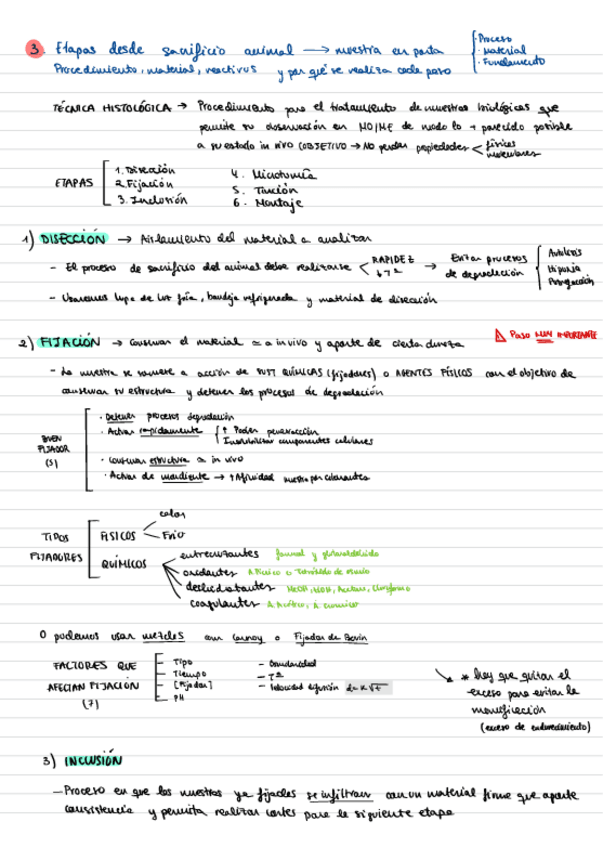 3. Etapas desde sacrificio animal → muestra en porta
· Proceso
· Material
· Fundamento
Procedimiento, material, reactivos y por qué se realiza cada paso
TÉCNICA HISTOLÓGICA → Procedimiento para el tratamiento de muestras biológicas que
permite su observación en MO/ME de modo lo + parecido posible
a su estado in vivo (OBJETIVO → No perder propiedades < físicas
moleculares
ETAPAS
1. Disección
2. Fijación
3. Inclusión
4. Microtomía
5. Tinción
6. Montaje
1) DISECCIÓN → Aislamiento del material a analizar
- El proceso de sacrificio del animal debe realizarse < RAPIDEZ
↓ Tª
→ Evitar procesos
de degradación
Autolisis
Hipoxia
Putrefacción
- Usaremos lupa de luz fría, bandeja refrigerada y material de disección
2) FIJACIÓN → Conservar el material ≃ a in vivo y aporte de cierta dureza
Paso MUY IMPORTANTE
- La muestra se somete a acción de SUST QUÍMICAS (fijadores) o AGENTES FÍSICOS con el objetivo de
conservar su estructura y detener los procesos de degradación
BUEN
FIJADOR
(5)
· Detener procesos degradación
· Actuar rápidamente
↑ Poder penetración
Insolubilizar componentes celulares
· Conservar estructura ≃ in vivo
· Actuar de mordiente → ↑ Afinidad muestra por colorantes
TIPOS
FIJADORES
FÍSICOS
calor
Frío
QUÍMICOS
entrecruzantes formol y glutaraldehído
oxidantes A. Pícrico o Tetróxido de osmio
deshidratantes MeOH, EtOH, Acetona, Cloroformo
coagulantes A. Acético, A. Crómico
O podemos usar mezclas como Carnoy o Fijador de Bouin
FACTORES QUE
AFECTAN FIJACIÓN
(7)
Tipo
Tiempo
[Fijador]
PH
- Osmolaridad
- Tª
- Velocidad difusión d = K√t
* hay que quitar el
exceso para evitar la
momificación
(exceso de endurecimiento)
3) INCLUSIÓN
- Proceso en que las muestras ya fijadas se infiltran con un material firme que aporte
consistencia y permita realizar cortes para la siguiente etapa